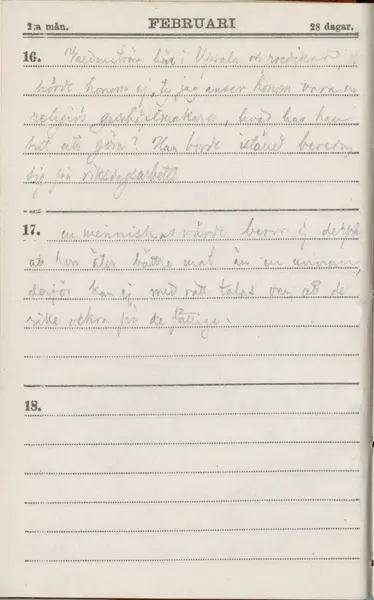 2:a mån. FEBRUARI 28 dagar.
16. Waldenström här i Upsala och predikar
hörde honom ej, ty jag anser honom vara en
religiös gycklare, hvad har han
här att göra? Han borde istället bereda
sig på riksdagsarbete
17. en menniskas värde beror ej derpå
att hon äter bättre mat än en annan,
derför kan ej med rätt talas om, att de
rike ockra på de fattige.
18.